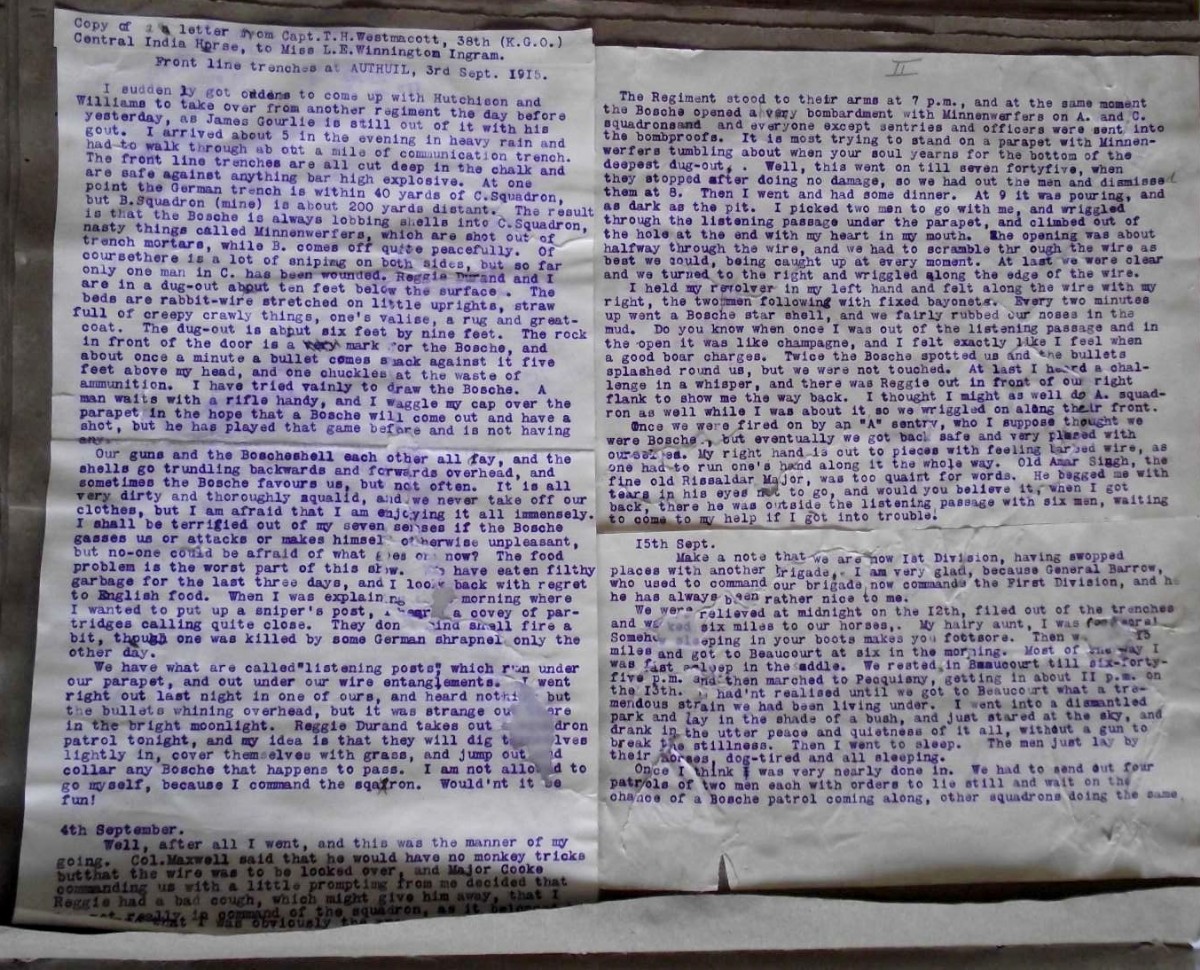 Copy of a letter from Capt.T.H.Westmacott, 38th (K.G.O.)
Central India Horse, to Miss L.E.Winnington Ingram.
Front line trenches at AUTHUIL, 3rd Sept. 1915.
I sudden ly got ordens to come up with Hutchison and
Williams to take over from another regiment the day before
yesterday, as James Gourlie is still out of it with his
gout. I arrived about 5 in the evening in heavy rain and
had to walk through ab out a mile of communication trench.
The front line trenches are all cut deep in the chalk and
are safe against anything bar high explosive. At one
point the German trench is within 40 yards of C.Squadron,
but B.Squadron (mine) is about 200 yards distant. The result
is that the Bosche is always lobbing shells into C.Squadron,
nasty things called Minnenwerfers, which are shot out of
trench mortars, while B. comes off quite peacefully. Of
coursethere is a lot of sniping on both sides, but so far
only one man in C. has been wounded. Reggie Durand and I
are in a dug-out about ten feet below the surface . The
beds are rabbit-wire stretched on little uprights, straw
full of creepy crawly things, one's valise, a rug and great-
coat. The dug-out is about six feet by nine feet. The rock
in front of the door is a very mark for the Bosche, and
about once a minute a bullet comes smack against it five
feet above my head, and one chuckles at the waste of
ammunition. I have tried vainly to draw the Bosche. A
man waits with a rifle handy, and I waggle my cap over the
parapet in the hope that a Bosche will come out and have a
shot, but he has played that game before and is not having
any.
Our guns and the Boscheshell each other all day, and the
shells go trundling backwards and forwards overhead, and
sometimes the Bosche favours us, but not often. It is all
very dirty and thoroughly squalid, and we never take off our
clothes, but I am afraid that I am enjoying it all immensely.
I shall be terrified out of my seven senses if the Bosche
gasses us or attacks or makes himsel otherwise unpleasant,
but no-one could be afraid of what goes on now? The food
problem is the worst part of this show. have eaten filthy
garbage for the last three days, and I look back with regret
to English food. When I was explaining morning where
I wanted to put up a sniper's post, a covey of par-
tridges calling quite close. They don mind small fire a
bit, though one was killed by some German shrapnel only the
other day.
We have what are called"listening posts" which run under
our parapet, and out under our wire entanglements. I went
right out last night in one of ours, and heard nothi but
the bullets whining overhead, but it was strange ou ere
in the bright moonlight. Reggie Durand takes out dron
patrol tonight, and my idea is that they will dig t lves
lightly in, cover themselves with grass, and jump out d
collar any Bosche that happens to pass. I am not allo d to
go myself, because I command the sqafron. Would'nt it be
fun!
4th September.
Well, after all I went, and this was the manner of my
going. Col.Maxwell said that he would have no monkey tricks
butthat the wire was to be looked over, and Major Cooke
commanding us with a little prompting from me decided that
Reggie had a bad cough, which might give him away, that I
not really in command of the squadron, as it
that I was obviously the
II
The Regiment stood to their arms at 7 p.m., and at the same moment
the Bosche opened a very bombardment with Minnenwerfers on A. and C.
squadronsand and everyone except sentries and officers were sent into
the bombproofs. It is most trying to stand on a parapet with Minnen-
werfers tumbling about when your soul yearns for the bottom of the
deepest dug-out, . Well, this went on till seven fortyfive, when
they stopped after doing no damage, so we had out the men and dismissed
them at 8. Then I went and had some dinner. At 9 it was pouring, and
as dark as the pit. I picked two men to go with me, and wriggled
through the listening passage under the parapet, and climbed out of
the hole at the end with my heart in my mouth. The opening was about
halfway through the wire, and we had to scramble thr ough the wire as
best we could, being caught up at every moment. At last we were clear
and we turned to the right and wriggled along the edge of the wire.
I held my revolver in my left hand and felt along the wire with my
right, the twomen following with fixed bayonets. Every two minutes
up went a Bosche star shell, and we fairly rubbed our noses in the
mud. Do you know when once I was out of the listening passage and in
the open it was like champagne, and I felt exactly like I feel when
a good boar charges. Twice the Bosche spotted us and the bullets
splashed round us, but we were not touched. At last I heard a chal-
lenge in a whisper, and there was Reggie out in front of our right
flank to show me the way back. I thought I might as well do A. squad-
ron as well while I was about it so we wriggled on along their front.
Once we were fired on by an "A" sentry, who I suppose thought we
were Bosche , but eventually we got back safe and very pleased with
ourselves. My right hand is cut to pieces with feeling barbed wire, as
one had to run one's hand along it the whole way. Old Amar Singh, the
fine old Rissaldar Major, was too quaint for words. He begged me with
tears in his eyes not to go, and would you believe it, when I got
back, there he was outside the listening passage with six men, waiting
to come to my help if I got into trouble.
15th Sept.
Make a note that we are now 1st Division, having swopped
places with another brigade, . I am very glad, because General Barrow,
who used to command our brigade now commands the First Division, and he
he has always been rather nice to me.
We were relieved at midnight on the 12th, filed out of the trenches
and w ked six miles to our horses,. My hairy aunt, I was footsore!
Someho sleeping in your boots makes you footsore. Then w 15
miles and got to Beaucourt at six in the morning. Most of the way I
was fast asleep in the saddle. We rested in Beaucourt till six-forty-
five p.m. and then marched to Pecquigny, getting in about 11 p.m. on
the 13th. had'nt realised until we got to Beaucourt what a tre-
mendous strain we had been living under. I went into a dismantled
park and lay in the shade of a bush, and just stared at the sky, and
drank in the utter peace and quietness of it all, without a gun to
break the stillness. Then I went to sleep. The men just lay by
their horses, dog-tired and all sleeping.
Once I think I was very nearly done in. We had to send out four
patrols of two men each with orders to lie still and wait on the
chance of a Bosche patrol coming along, other squadrons doing the same.